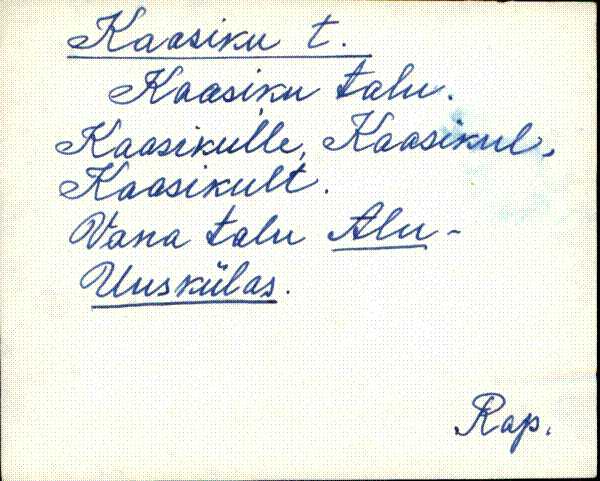 Kaasiku t.
Kaasiku talu.
Kaasikulle, Kaasikul,
Kaasikult.
Vana talu Alu-
Uuskülas.
Rap.